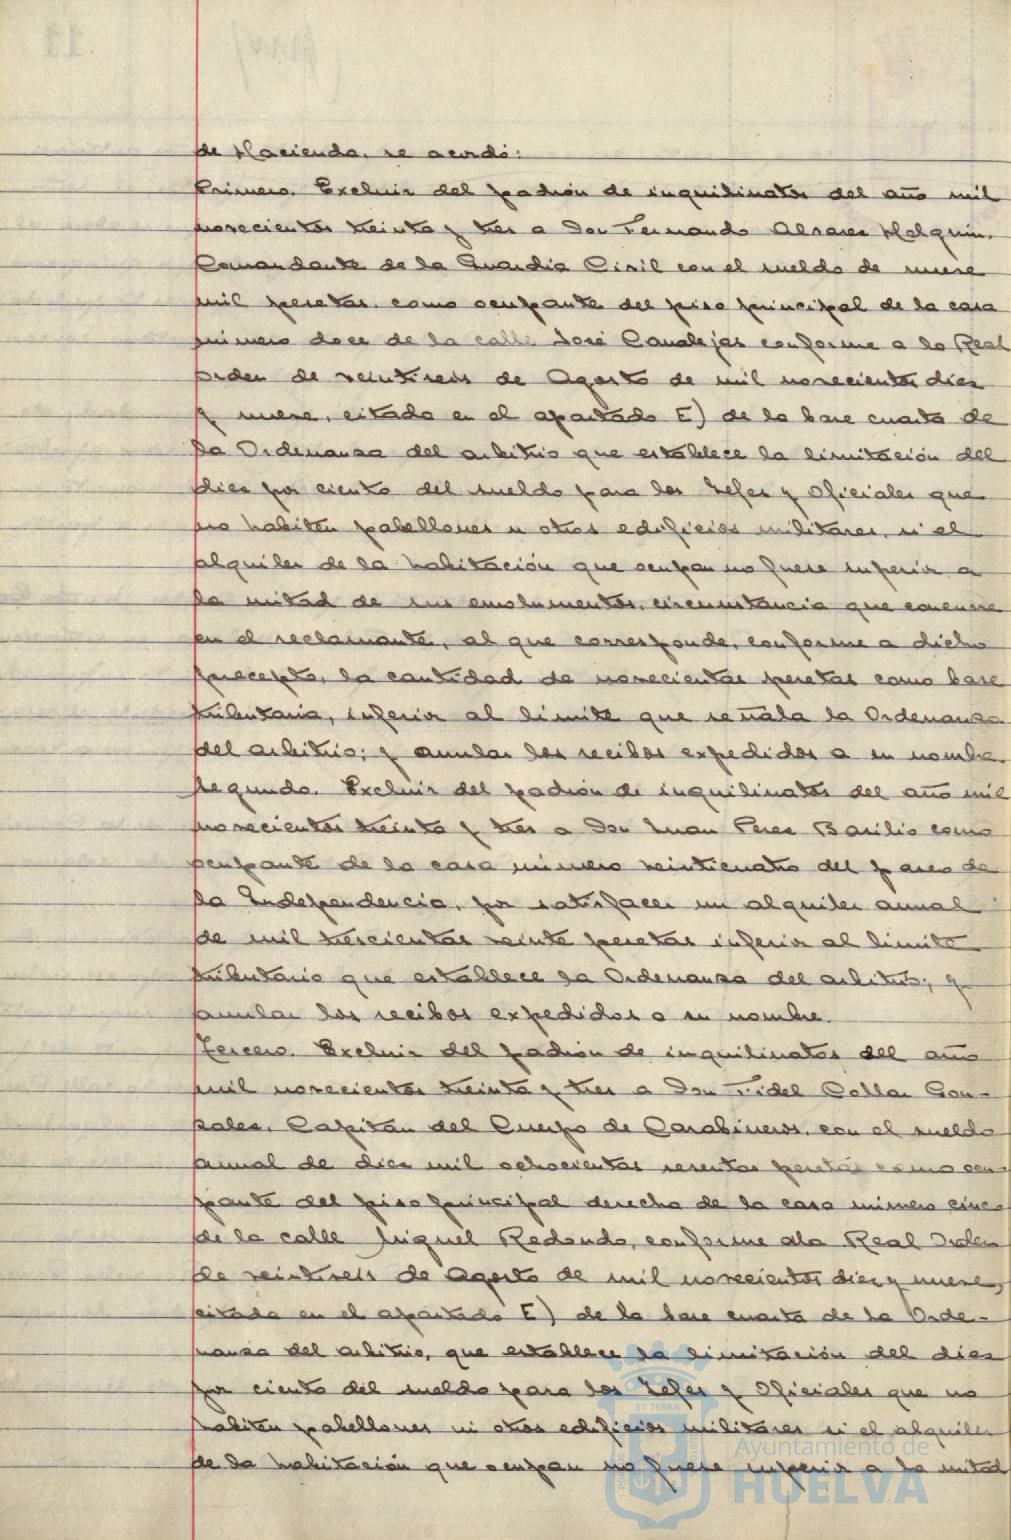 de Hacienda, se acordó:
Primero. Excluir del padrón de inquilinatos del año mil
novecientos treinta y tres a Don Fernando Alvarez Holguin,
Comandante de la Guardia Civil con el sueldo de nueve
mil pesetas, como ocupante del piso principal de la casa
número doce de la calle José Canalejas conforme a la Real
orden de veintiseis de Agosto de mil novecientos diez
y nueve, citada en el apartado E) de la base cuarta de
la Ordenanza del arbitrio que establece la limitación del
diez por ciento del sueldo para los Jefes y Oficiales que
no habiten pabellones u otros edificios militares, si el
alquiler de la habitación que ocupan no fuese superior a
la mitad de sus emolumentos, circunstancia que concurre
en el reclamante, al que corresponde, conforme a dicho
precepto, la cantidad de novecientas pesetas como base
tributaria, inferior al límite que señala la Ordenanza
del arbitrio; y anular los recibos expedidos a su nombre.
Segundo. Excluir del padrón de inquilinatos del año mil
novecientos treinta y tres a Don Juan Perez Basilio como
ocupante de la casa número veinticuatro del paseo de
la Independencia, por satisfacer un alquiler anual
de mil trescientas veinte pesetas inferior al límite
tributario que establece la Ordenanza del arbitrio; y
anular los recibos expedidos a su nombre.
Tercero. Excluir del padrón de inquilinatos del año
mil novecientos treinta y tres a Don Fidel Collar Gon-
zalez, Capitán del Cuerpo de Carabineros, con el sueldo
anual de diez mil ochocientas sesentas pesetas como ocu-
pante del piso principal derecha de la casa número cinco
de la calle Miguel Redondo, conforme ala Real Orden
de veintiseis de Agosto de mil novecientos diez y nueve,
citada en el apartado E) de la base cuarta de la Orde-
nanza del arbitrio, que establece la limitación del diez
por ciento del sueldo para los Jefes y Oficiales que no
habiten pabellones ni otros edificios militares si el alquiler
de la habitación que ocupan no fuese superior a la mitad
Ayuntamiento de
HUELVA